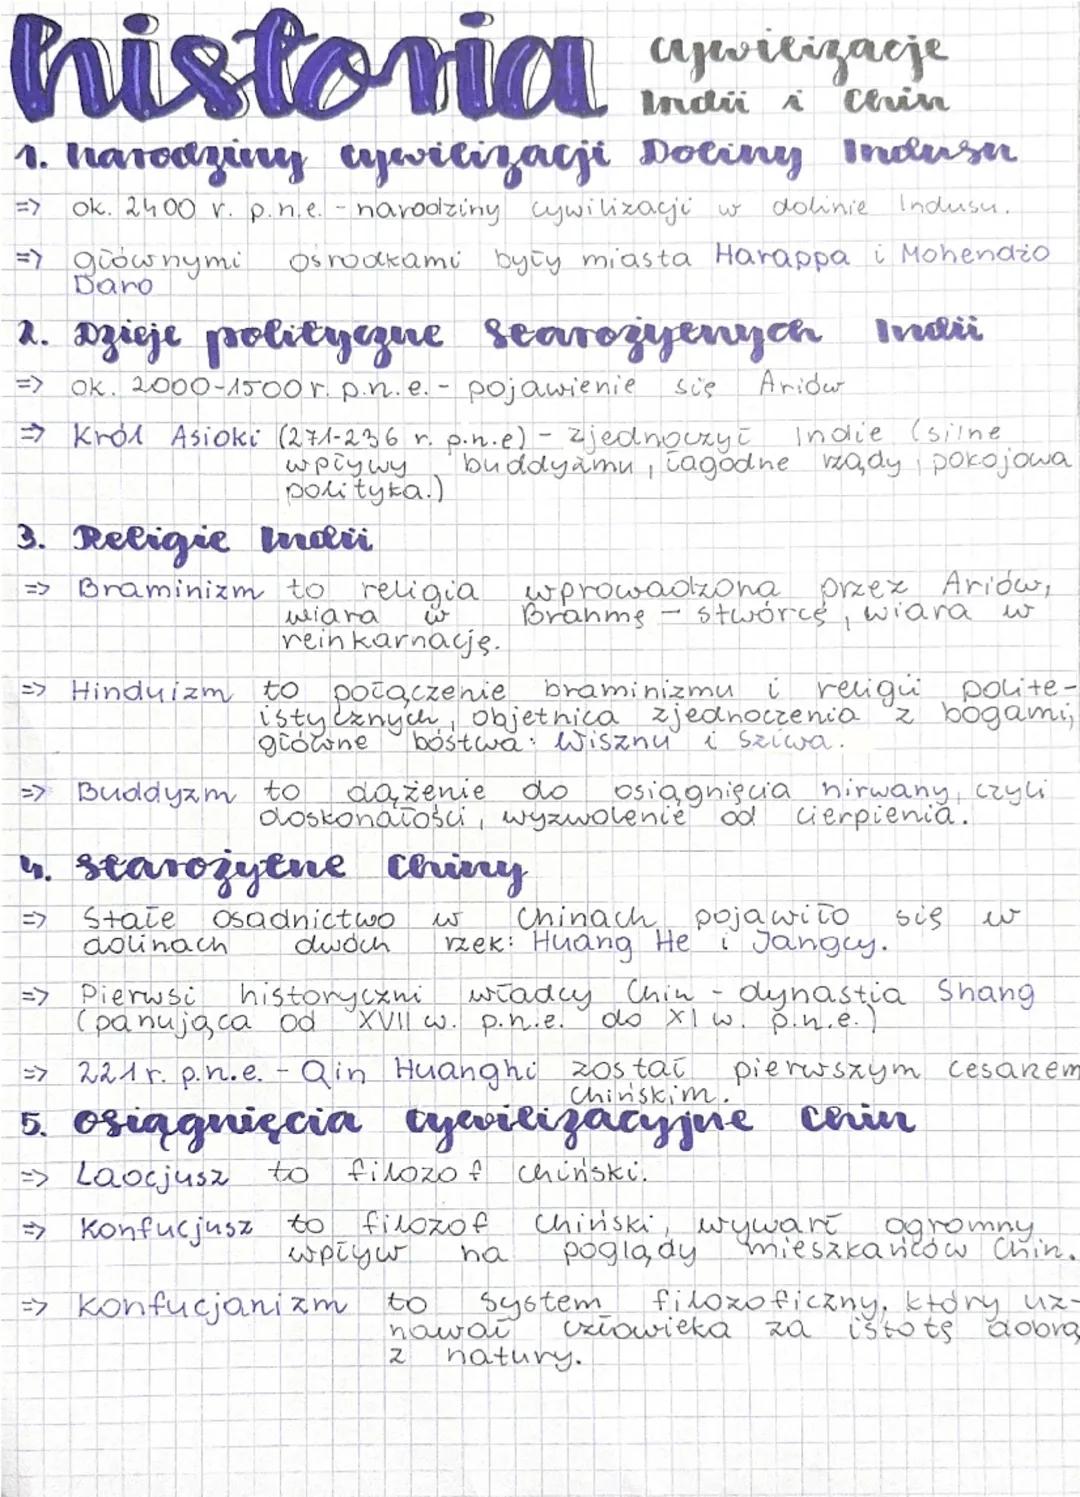 historia
cywilizacje
Indii i Chin
1. Narodziny cywilizacji Doliny Indusu
=> ok. 2400 r. p.n.e. - narodziny cywilizacji w dolinie Indusu.
=> głównymi ośrodkami były miasta Harappa i Mohendżo
Daro
2. Dzieje polityczne Starożytnych Indii
=> ok. 2000-1500r. p.n.e. - pojawienie się Ariów
=> Król Asioki (271-236 r. p.n.e) - zjednoczył Indie (silne
wpływy buddyzmu, łagodne rządy, pokojowa
polityka.)
3. Religie Indii
=> Braminizm to religia wprowadzona przez Ariów,
wiara w Brahmę - stwórcę, wiara w
reinkarnację.
=> Hinduizm to połączenie braminizmu i religii polite-
istycznych, objetnica zjednoczenia z bogami,
główne bóstwa: Wisznu i Sziwa.
=> Buddyzm to dążenie do osiągnięcia nirwany, czyli
doskonałości, wyzwolenie od cierpienia.
4. Starożytne Chiny
=> Stałe osadnictwo w Chinach pojawiło się w
dolinach dwóch rzek: Huang He i Jangcy.
=> Pierwsi historyczni władcy Chin - dynastia Shang
(panująca od XVII w. p.n.e. do XI w. p.n.e.)
=> 221r. p.n.e. - Qin Huanghi został pierwszym cesarzem
chińskim.
5. Osiągnięcia cywilizacyjne Chin
=> Laocjusz to filozof chiński.
=> Konfucjusz to filozof chiński, wywarł ogromny
wpływ na poglądy mieszkańców Chin.
=> Konfucjanizm to system filozoficzny, który uz-
nawał człowieka za istotę dobrą
z natury.